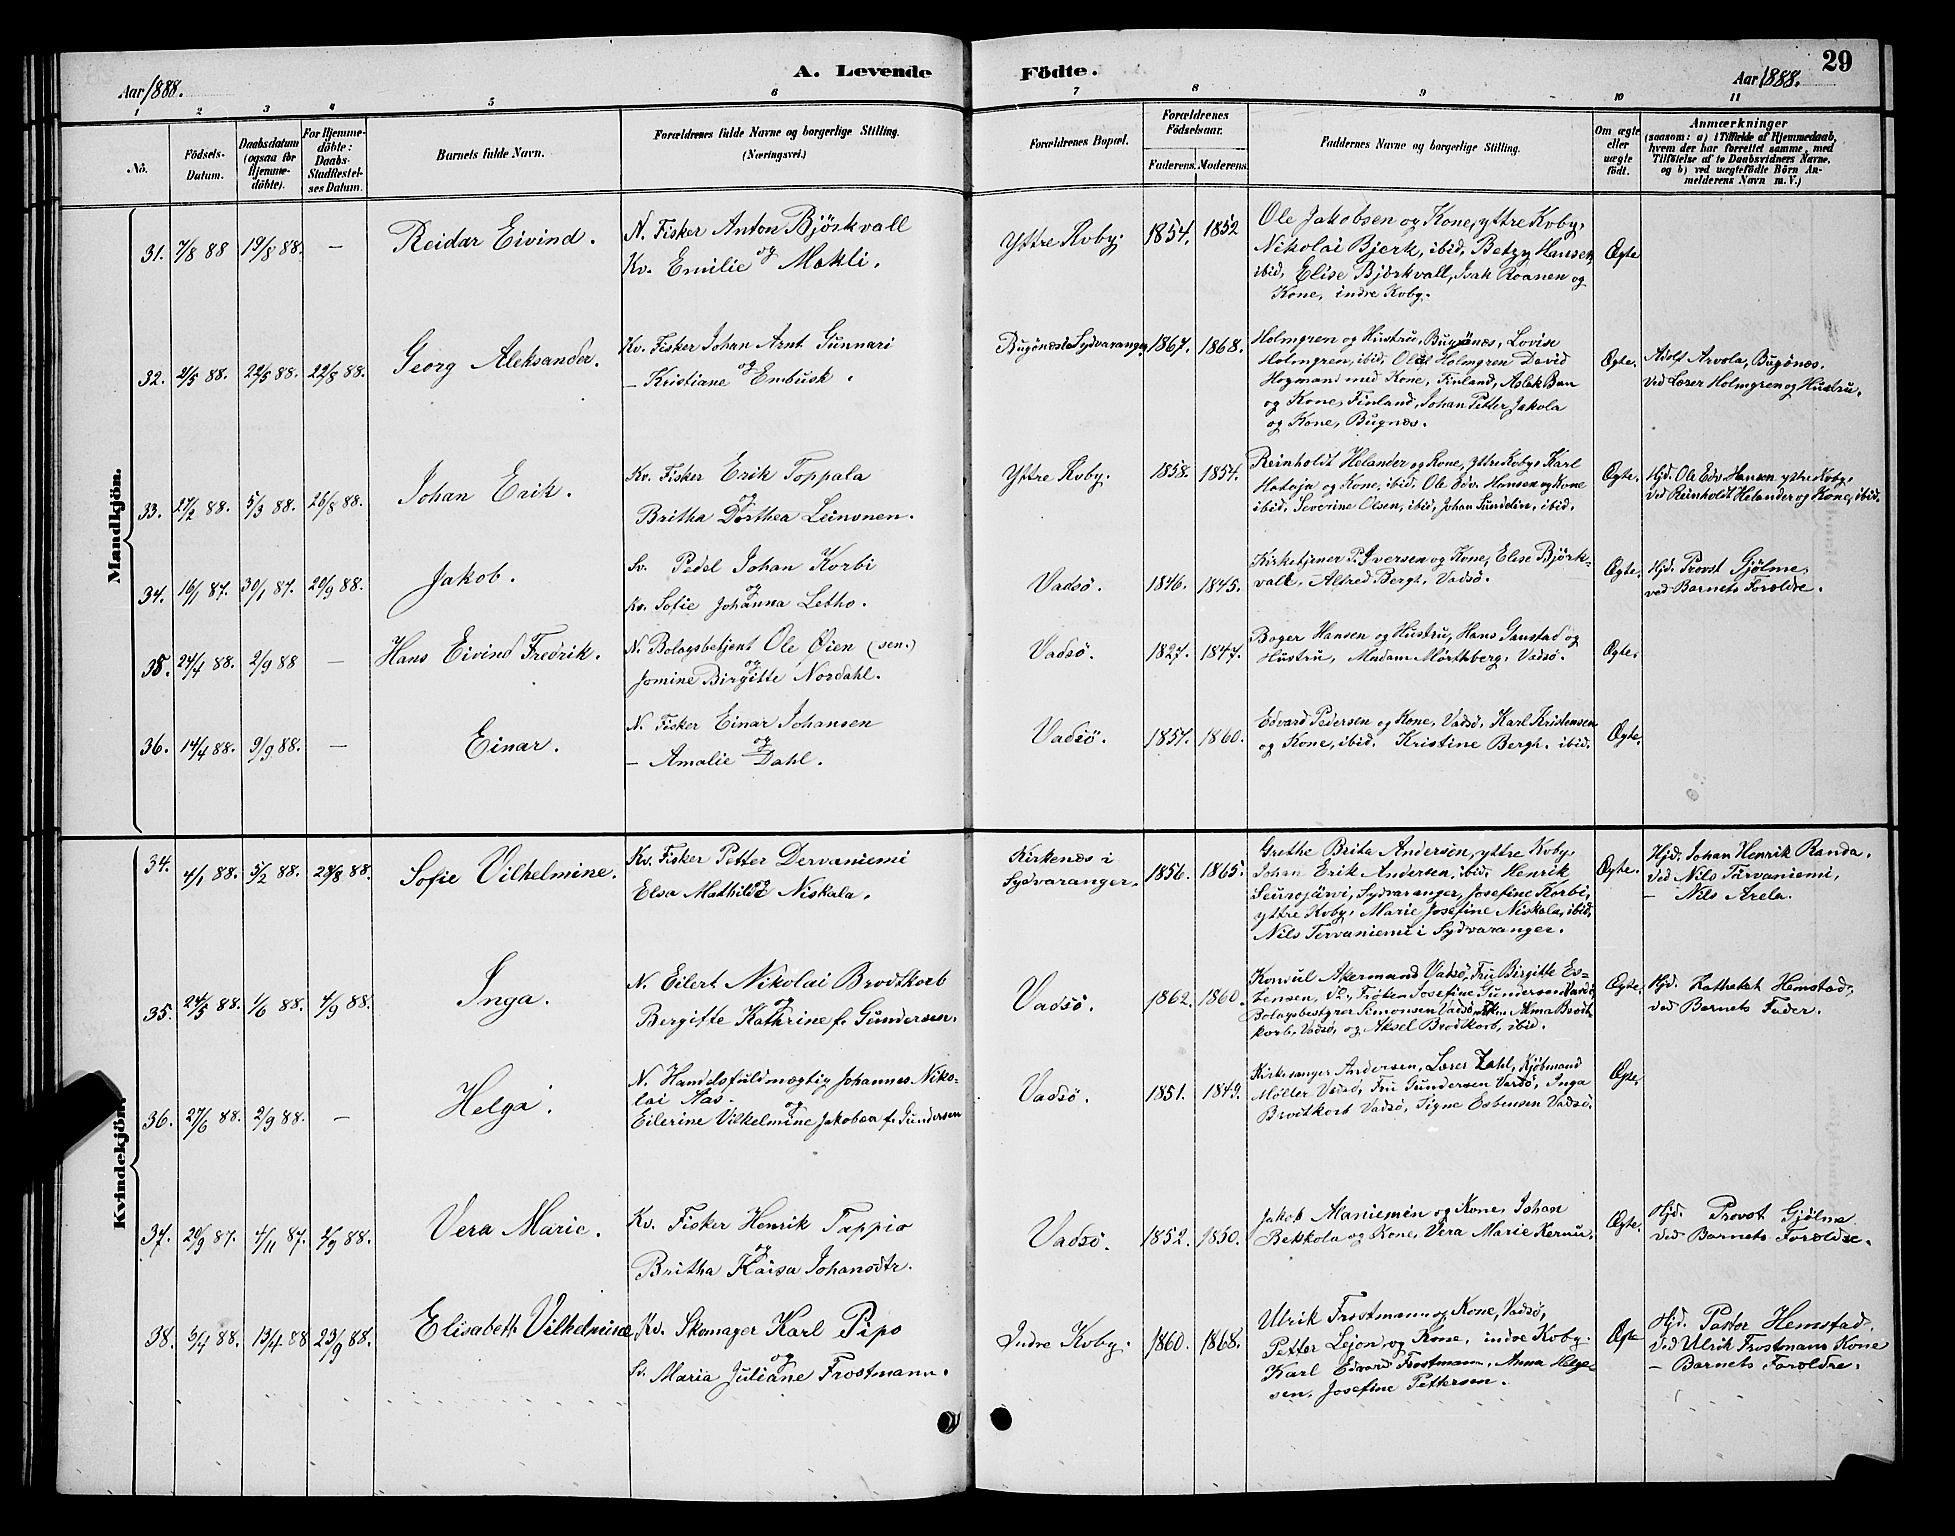 A. Levende Födte.
29
Aar 1888.
Aar 1888.
1 2 3 4 5 6 7 8 9 10 11
No.
Födsels-Datum.
Daabsdatum (ogsaa for Hjemme-döbte).
For Hjemme-döbte: Daabs-Stadfæstel-ses Datum.
Barnets fulde Navn.
Forældrenes fulde Navne og borgerlige Stilling. (Næringsvei.)
Forældrenes Bopæl.
Forældrenes Födselsaar.
Faderens. Moderens.
Faddernes Navne og borgerlige Stilling.
Om ægte eller uægte født.
Anmærkninger
(saasom: a) i Tilfælde af Hjemmedaab, hvem der har forrettet samme, med Tilföielse af to Daabsvidners Navne, og b) ved uægtefödte Börn An-melderens Navn m. V.)
Mandkjön.
31. 7/8 88 19/8 88. — Reidar Eivind.
N. Fisker Anton Björkvall
og
Kv. Emilie Makli.
Yttre Kvby. 1854. 1852
Ole Jakobsen og Kone, yttre Kvby,
Nikolai Bjerk, ibid, Betzy Hansen,
ibid, Elise Björkvall, Isak Roanen og
Kone, indre Kvby.
Ægte
32. 2/5 88. 22/5 88. 22/8 88. Georg Aleksander.
Kv. Fisker Johan Arnt Gunnari
og
— Kristiane Embusk.
Bugönes i Sydvaranger 1867. 1868.
Holmgren og Hustru, Bugönes, Lovise
Holmgren, ibid, Oluf Holmgren David
Hogmand med Kone, Finland, Aslak Ban
og Kone, Finland, Johan Petter Jakola
og Kone, Bugnæs.
Ægte.
Adolf Arvola, Bugönes.
Ved Lærer Holmgren og Hustru.
33. 27/2 88. 5/3 88. 26/8 88. Johan Erik.
Kv. Fisker Erik Toppala
og
Britha Dorthea Leinonen.
Yttre Kvby. 1858. 1854.
Reinholdt Helander og Kone, yttre Kvby, Karl
Hataja og Kone, ibid. Ole Edv. Hansen og Kone
ibid, Severine Olsen, ibid, Johan Sundelin, ibid.
Ægte.
Hjd. Ole Edv. Hansen yttre Kvby,
Ved Reinholdt Helander og Kone, ibid.
34. 16/1 87. 30/1 87. 20/9 88. Jakob.
Sv. Pedel Johan Korbi
og
Kv. Sofie Johanna Letho.
Vadsö. 1846. 1845.
Kirketjener P. Iversen og Kone, Elise Björk-
vall, Alfred Bergh, Vadsö.
Ægte.
Hjd. Provst Gjölme,
ved Barnets Forældre.
35. 24/4 88. 2/9 88 — Hans Eivind Fredrik.
N. Bolagsbetjent Ole Øien (sen.)
og
Jomine Birgitte Nordahl.
Vadsö. 1827. 1847.
Boger Hansen og Hustru, Hans Ganstad og
Hustru, Madam Mörthberg, Vadsö.
Ægte.
36. 14/4 88. 9/9 88. — Einar.
N. Fisker Einar Johansen
og
— Amalie Dahl.
Vadsö. 1857. 1860.
Edvard Pedersen og Kone, Vadsö, Karl Kristensen
og Kone, ibid. Kristine Bergh, ibid.
Ægte.
Kvindekjön.
34. 4/1 88. 5/2 88. 28/8 88. Sofie Vilhelmine.
Kv. Fisker Petter Dervaniemi
Elsa Mathilde Niskala.
Kirkenæs i
Sydvaranger. 1856. 1865.
Grethe Brita Andersen, yttre Kvby,
Johan Erik Andersen, ibid. Henrik
Seurojärvi, Sydvaranger, Josefine Korbi,
yttre Kvby, Marie Josefine Niskala, ibid,
Nils Tervaniemi i Sydvaranger.
Ægte.
Hjd. Johan Henrik Randa.
Ved Nils Tarvaniemi,
— Nils Arela.
35. 24/5 88. 1/6 88. 4/9 88. Inga.
N. Eilert Nikolai Brodtkorb
og
Bergitte Kathrine f. Gundersen.
Vadsö. 1862. 1860.
Konsul Akermand Vadsö, Fru Birgitte Es-
bensen, V., Fröken Josefine Gundersen Vadsö,
Bolagsbestyrer Simonsen Vadsö, Alma Brodt-
korb, Vadsö, og Aksel Brodtkorb, ibid.
Ægte.
Hjd. Katheket Hemstad,
ved Barnets Fader.
36. 27/6 88. 2/9 88. — Helga.
N. Handelsfuldmægtig Johannes Niko-
lai Aas.
og
Eilerine Vilhelmine Jakobea f. Gundersen
Vadsö. 1851. 1849.
Kirkesanger Andersen, Lærer Zahl, Kjöbmand
Möller Vadsö, Fru Gundersen Vardö, Inga
Brodtkorb Vadsö, Signe Esbensen Vadsö.
Ægte.
37. 20/9 87. 4/11 87. 2/9 88. Vera Marie.
Kv. Fisker Henrik Tappio
og
Britha Kaisa Johansdtr.
Vadsö. 1852. 1850.
Jakob Maniemen og Kone, Johan
Bekkola og Kone, Vera Marie Kernu.
Ægte.
Hjd. Provst Gjölme.
Ved Barnets Forældre.
38. 5/4 88. 13/4 88 23/9 88. Elisabeth Vilhelmine,
Kv. Skomager Karl Pipo
og
Sv. Maria Juliane Frostmann.
Indre Kvby. 1860. 1868.
Ulrik Frostmann og Kone, Vadsö,
Petter Lejon og Kone, indre Kvby.
Karl Edvard Frostmann, Anna Helge-
sen, Josefine Pettersen.
Ægte
Hjd. Pastor Hemstad.
Ved Ulrik Frostmans Kone
— Barnets Forældre.